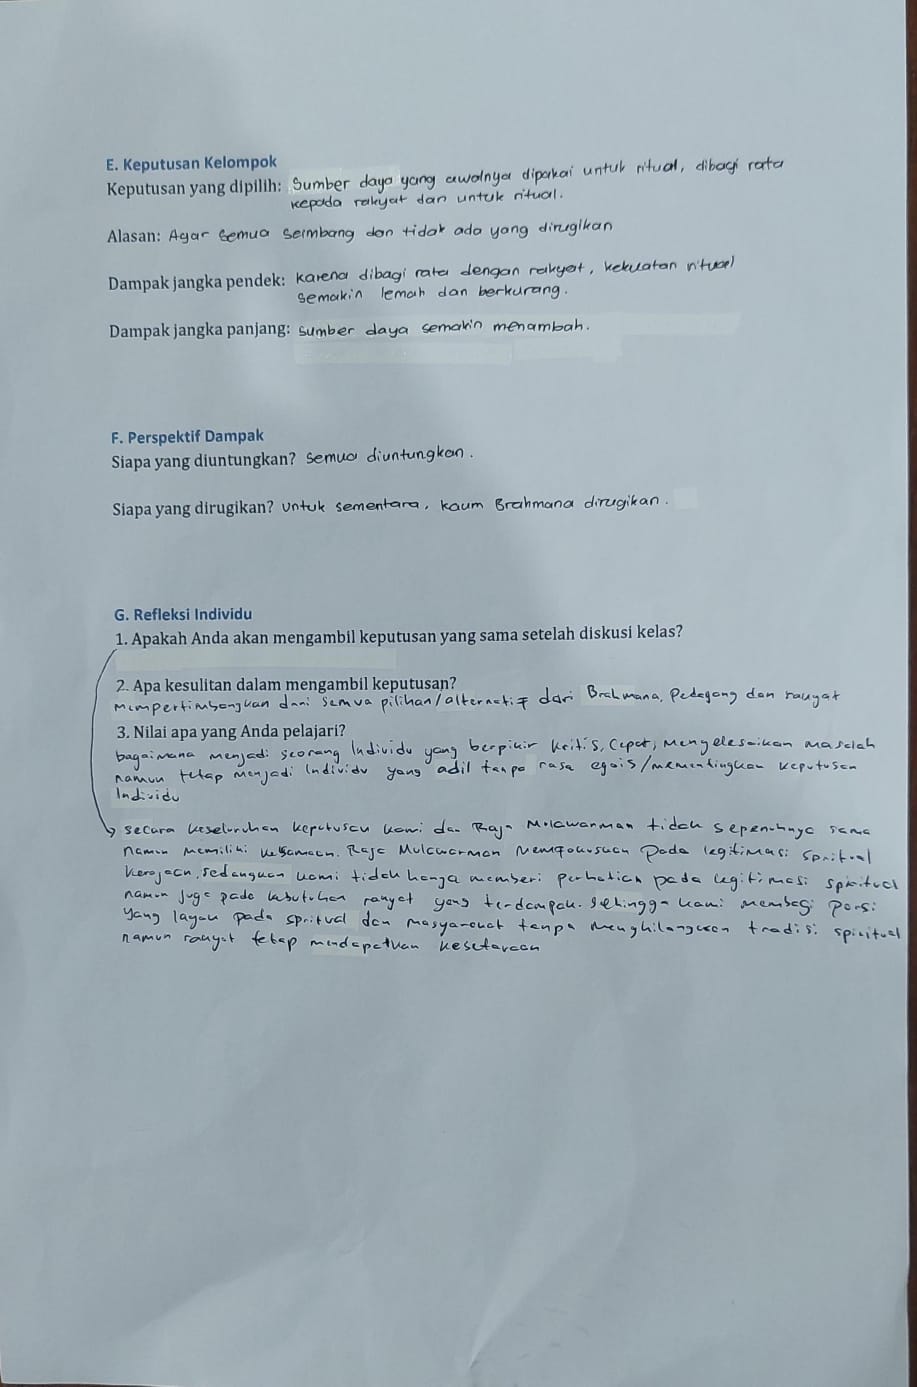 E. Keputusan Kelompok
Keputusan yang dipilih: Sumber daya yang awalnya dipakai untuk ritual, dibagi rata
kepada rakyat dan untuk ritual.
Alasan: Agar semua seimbang dan tidak ada yang dirugikan
Dampak jangka pendek: karena dibagi rata dengan rakyat, kekuatan ritual
semakin lemah dan berkurang.
Dampak jangka panjang: Sumber daya semakin menambah.
F. Perspektif Dampak
Siapa yang diuntungkan? Semua diuntungkan.
Siapa yang dirugikan? Untuk sementara, kaum Brahmana dirugikan.
G. Refleksi Individu
1. Apakah Anda akan mengambil keputusan yang sama setelah diskusi kelas?
2. Apa kesulitan dalam mengambil keputusan?
Mempertimbangkan dari semua pilihan/alternatif dari Brahmana, Pedagang dan rakyat
3. Nilai apa yang Anda pelajari?
bagaimana menjadi seorang Individu yang berpikir kritis, Cepat, Menyelesaikan masalah
namun tetap menjadi Individu yang adil tanpa rasa egois/mementingkan keputusan
Individu
secara keseluruhan keputusan kami dan Raja Mulawarman tidak sepenuhnya sama
namun memiliki kesamaan. Raja Mulawarman memfokuskan pada legitimasi spiritual
kerajaan, sedangkan kami tidak hanya memberi perhatian pada legitimasi spiritual
namun juga pada kebutuhan rakyat yang terdampak. Sehingga kami membagi porsi
yang layak pada spritual dan masyarakat tanpa menghilangkan tradisi spiritual
namun rakyat tetap mendapatkan kesetaraan